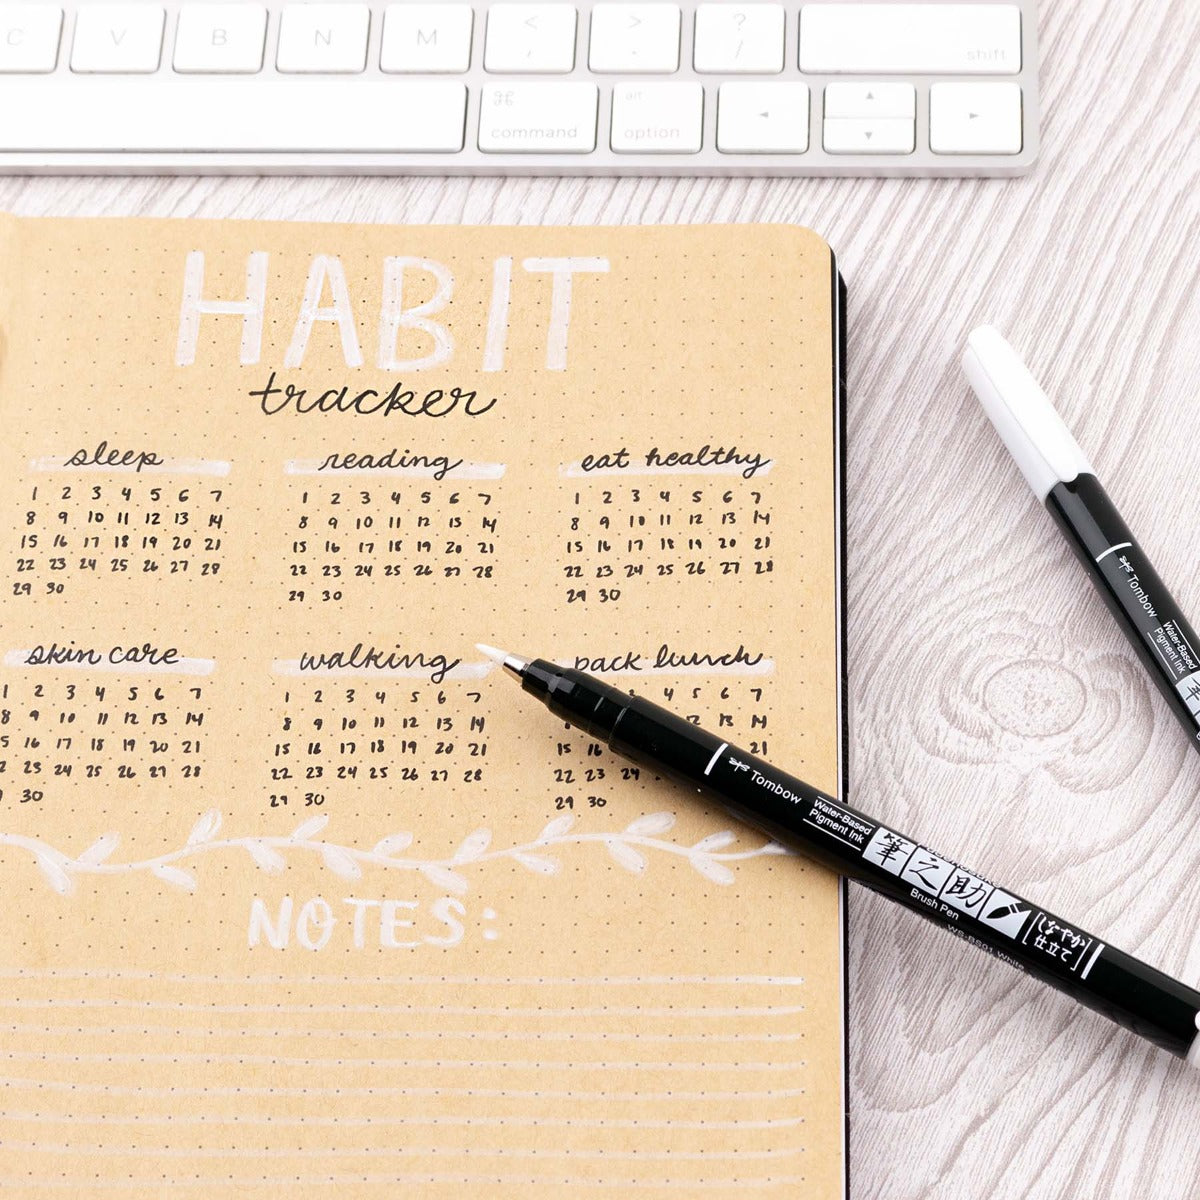 C V B N M < , > . ? / shift
⌘ command alt option ◄ ▲ ▼ ►
HABIT
tracker
sleep reading eat healthy
1 2 3 4 5 6 7 1 2 3 4 5 6 7 1 2 3 4 5 6 7
8 9 10 11 12 13 14 8 9 10 11 12 13 14 8 9 10 11 12 13 14
15 16 17 18 19 20 21 15 16 17 18 19 20 21 15 16 17 18 19 20 21
22 23 24 25 26 27 28 22 23 24 25 26 27 28 22 23 24 25 26 27 28
29 30 29 30 29 30
skin care walking pack lunch
1 2 3 4 5 6 7 1 2 3 4 5 6 7 3 4 5 6 7
8 9 10 11 12 13 14 8 9 10 11 12 13 14 12 13 14
5 16 17 18 19 20 21 15 16 17 18 19 20 21 15 16 21
2 23 24 25 26 27 28 22 23 24 25 26 27 28 22 23 24
30 29 30 29 30
NOTES:
Tombow
Water-Based
Pigment Ink
筆之助
Brush Pen
WS-BS01 White
しなやか
仕立て
Tombow
Water-Based
Pigment Ink